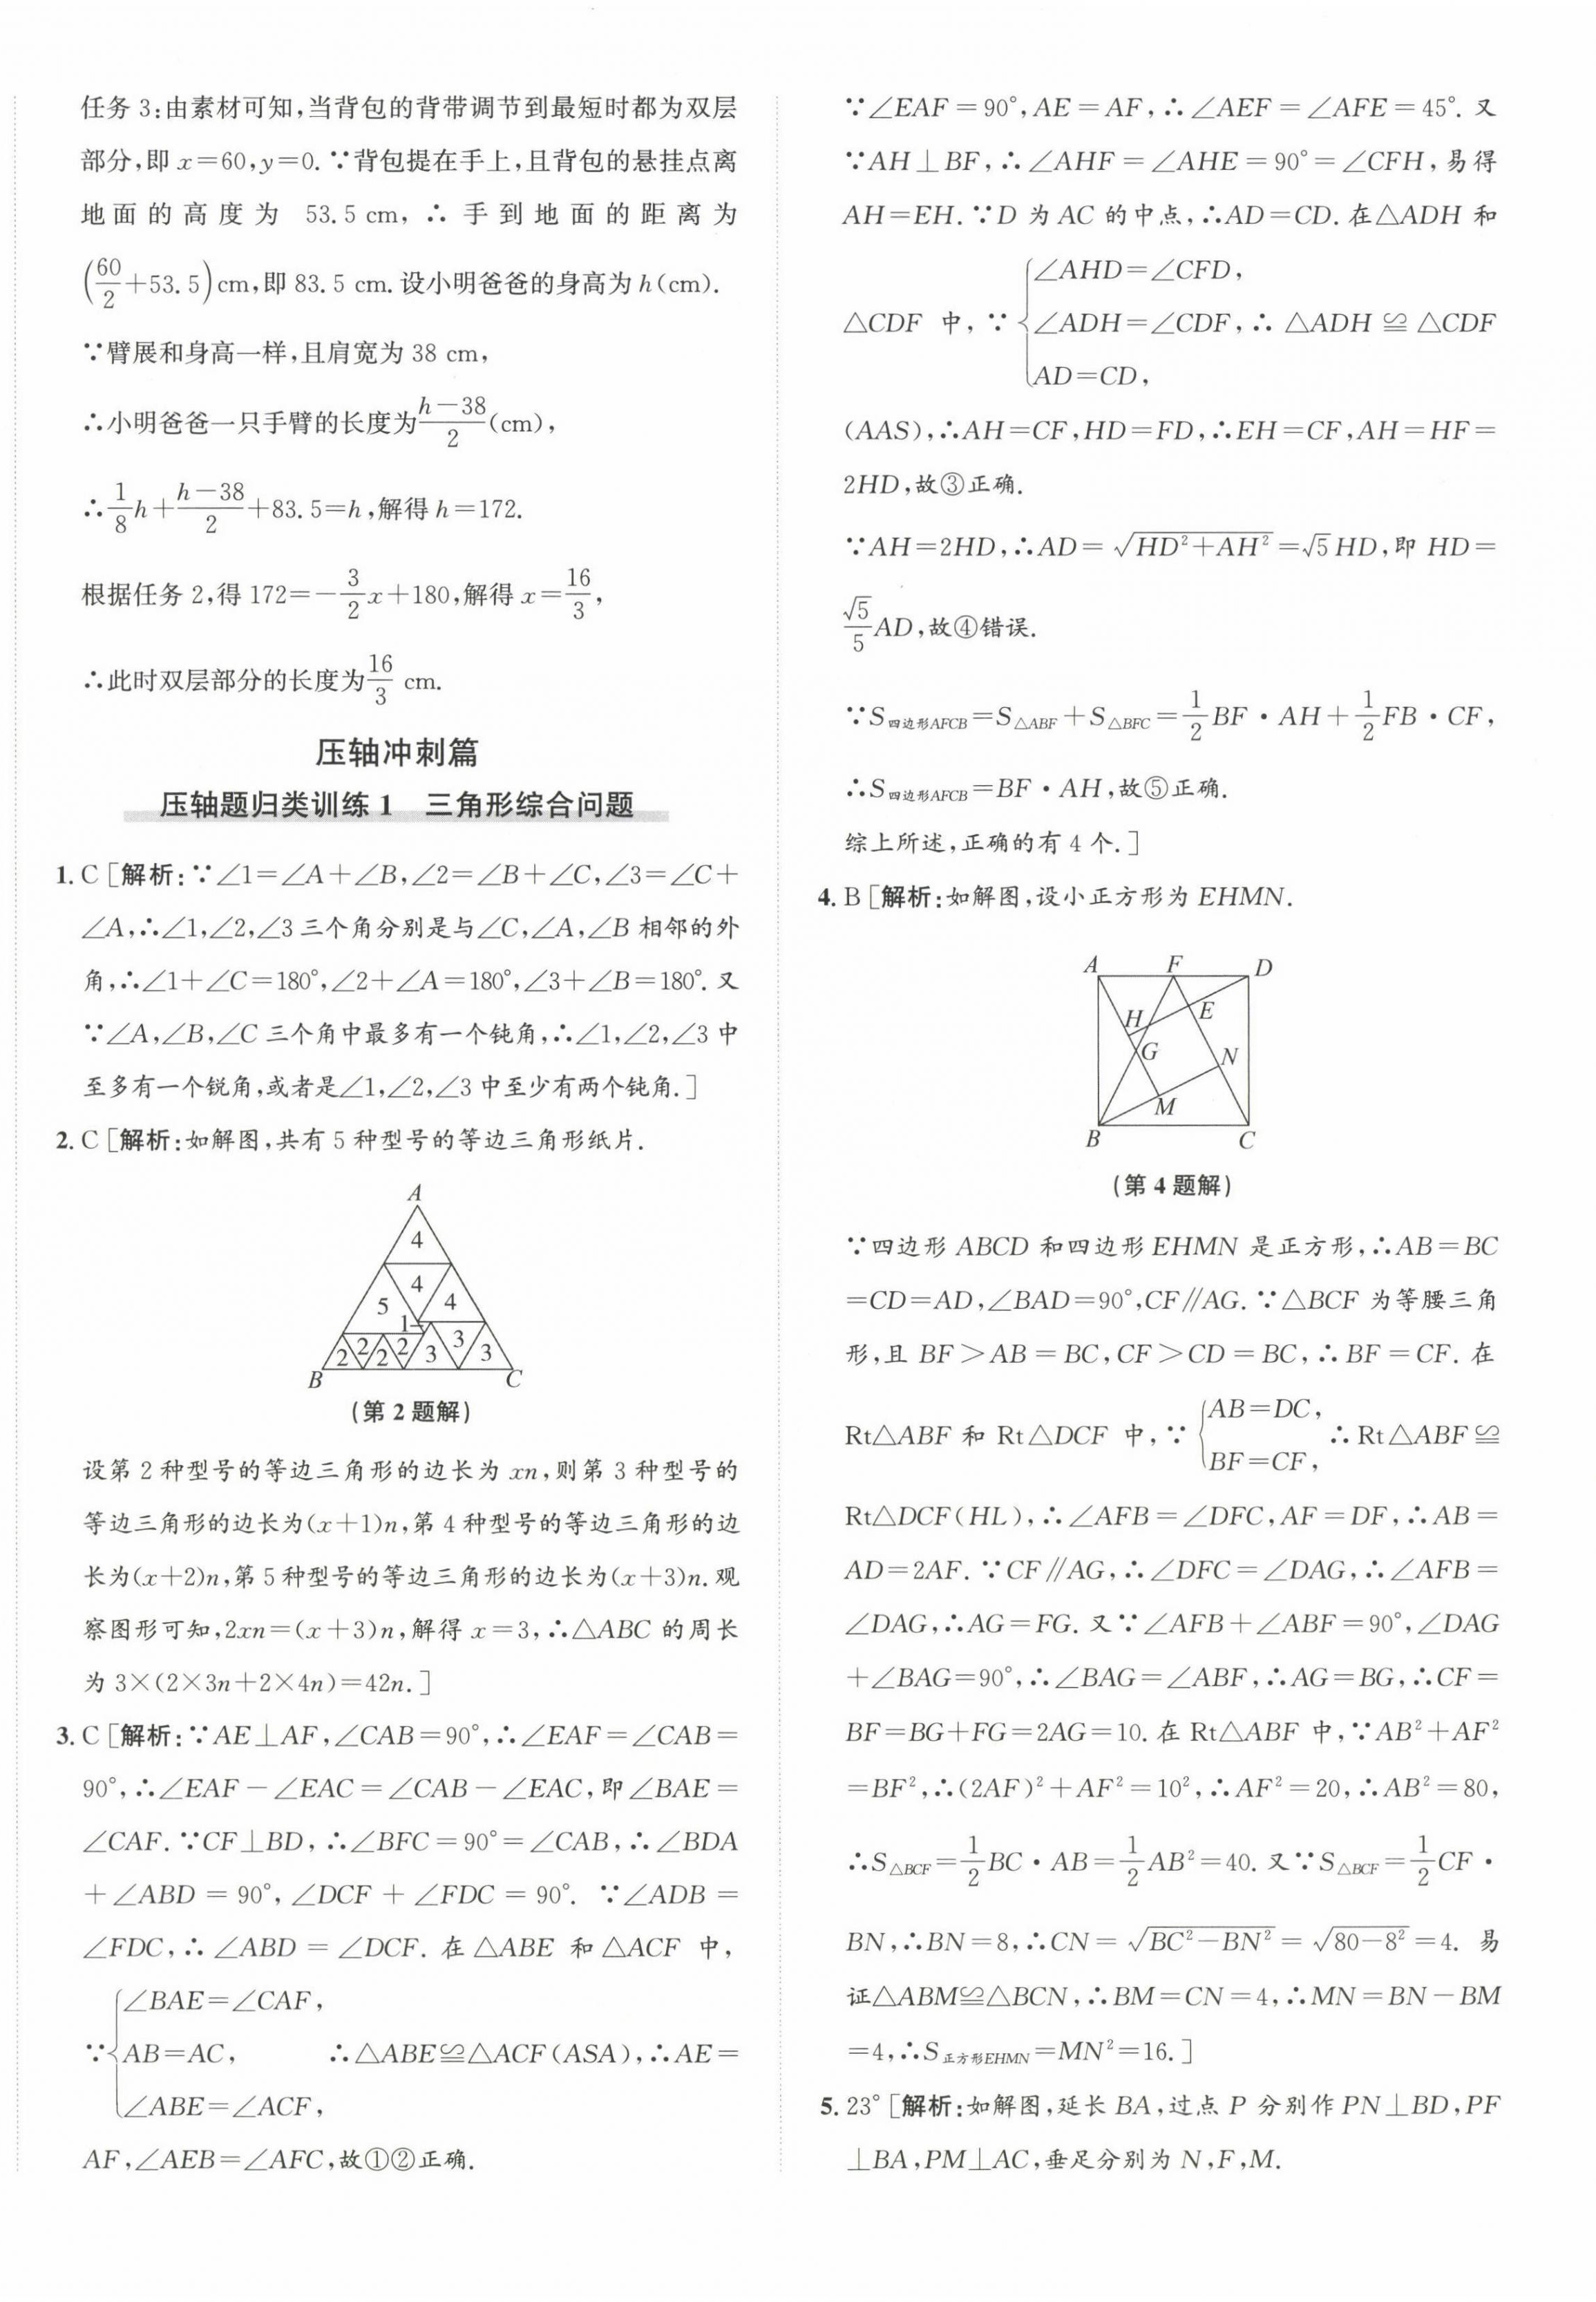 任务 3:由素材可知,当背包的背带调节到最短时都为双层
部分,即 x=60,y=0. ∵背包提在手上,且背包的悬挂点离
地面的高度为 53.5 cm, ∴ 手到地面的距离为
(60/2+53.5)cm,即 83.5 cm. 设小明爸爸的身高为 h(cm).
∵臂展和身高一样,且肩宽为 38 cm,
∴小明爸爸一只手臂的长度为(h-38)/2(cm),
∴1/8h+(h-38)/2+83.5=h,解得 h=172.
根据任务 2,得 172=-3/2x+180,解得 x=16/3,
∴此时双层部分的长度为16/3 cm.
压轴冲刺篇
压轴题归类训练 1 三角形综合问题
1. C [解析:∵∠1=∠A+∠B,∠2=∠B+∠C,∠3=∠C+
∠A,∴∠1,∠2,∠3 三个角分别是与∠C,∠A,∠B 相邻的外
角,∴∠1+∠C=180°,∠2+∠A=180°,∠3+∠B=180°. 又
∵∠A,∠B,∠C 三个角中最多有一个钝角,∴∠1,∠2,∠3 中
至多有一个锐角,或者是∠1,∠2,∠3 中至少有两个钝角.]
2. C [解析:如解图,共有 5 种型号的等边三角形纸片.
A
4
4
5
4
1
2
2
2
2
3
3
3
B
C
(第 2 题解)
设第 2 种型号的等边三角形的边长为 xn,则第 3 种型号的
等边三角形的边长为(x+1)n,第 4 种型号的等边三角形的边
长为(x+2)n,第 5 种型号的等边三角形的边长为(x+3)n. 观
察图形可知,2xn=(x+3)n,解得 x=3,∴△ABC 的周长
为 3×(2×3n+2×4n)=42n.]
3. C [解析:∵AE⊥AF,∠CAB=90°,∴∠EAF=∠CAB=
90°,∴∠EAF-∠EAC=∠CAB-∠EAC,即∠BAE=
∠CAF. ∵CF⊥BD,∴∠BFC=90°=∠CAB,∴∠BDA
+∠ABD=90°,∠DCF+∠FDC=90°. ∵∠ADB=
∠FDC,∴∠ABD=∠DCF. 在△ABE 和△ACF 中,
∠BAE=∠CAF,
∵{AB=AC, ∴△ABE≌△ACF(ASA),∴AE=
∠ABE=∠ACF,
AF,∠AEB=∠AFC,故①②正确.
∵∠EAF=90°,AE=AF,∴∠AEF=∠AFE=45°. 又
∵AH⊥BF,∴∠AHF=∠AHE=90°=∠CFH,易得
AH=EH. ∵D 为 AC 的中点,∴AD=CD. 在△ADH 和
∠AHD=∠CFD,
△CDF 中,∵{∠ADH=∠CDF,∴△ADH≌△CDF
AD=CD,
(AAS),∴AH=CF,HD=FD,∴EH=CF,AH=HF=
2HD,故③正确.
∵AH=2HD,∴AD=√(HD²+AH²)=√5HD,即 HD=
√5/5AD,故④错误.
∵S四边形AFCB=S△ABF+S△BFC=1/2BF·AH+1/2FB·CF,
∴S四边形AFCB=BF·AH,故⑤正确.
综上所述,正确的有 4 个.]
4. B [解析:如解图,设小正方形为 EHMN.
A
F
D
H
E
G
N
M
B
C
(第 4 题解)
∵四边形 ABCD 和四边形 EHMN 是正方形,∴AB=BC
=CD=AD,∠BAD=90°,CF∥AG. ∵△BCF 为等腰三角
形,且 BF>AB=BC,CF>CD=BC,∴BF=CF. 在
Rt△ABF 和 Rt△DCF 中,∵{AB=DC, BF=CF, ∴Rt△ABF≌
Rt△DCF(HL),∴∠AFB=∠DFC,AF=DF,∴AB=
AD=2AF. ∵CF∥AG,∴∠DFC=∠DAG,∴∠AFB=
∠DAG,∴AG=FG. 又∵∠AFB+∠ABF=90°,∠DAG
+∠BAG=90°,∴∠BAG=∠ABF,∴AG=BG,∴CF=
BF=BG+FG=2AG=10. 在 Rt△ABF 中,∵AB²+AF²
=BF²,∴(2AF)²+AF²=10²,∴AF²=20,∴AB²=80,
∴S△BCF=1/2BC·AB=1/2AB²=40. 又∵S△BCF=1/2CF·
BN,∴BN=8,∴CN=√(BC²-BN²)=√(80-8²)=4. 易
证△ABM≌△BCN,∴BM=CN=4,∴MN=BN-BM
=4,∴S正方形EHMN=MN²=16.]
5. 23° [解析:如解图,延长 BA,过点 P 分别作 PN⊥BD,PF
⊥BA,PM⊥AC,垂足分别为 N,F,M.